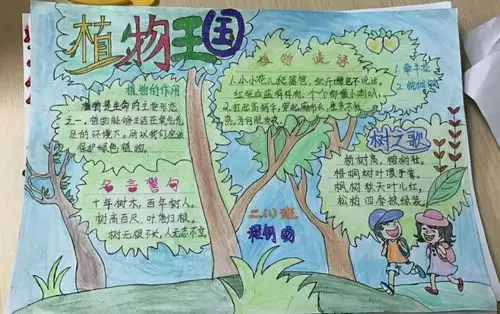 植物王国
植物的作用
植物是生命的主要形态
之一,植物能够生活在氧气充
足的环境下。所以我们应该
保护绿色植物。
名言警句
十年树木,百年树人。
树高百尺,叶落归根。
树无根不长,人无志不立。
植物谜语
1.小小花儿爬篱笆,张开嘴巴不说话,
红紫白蓝样样有,个个都像小喇叭
1.牵牛花
2.
树之歌
杨树高,榕树壮,
梧桐树叶像手掌。
枫树秋天叶儿红,
松柏四季披绿装。
二(1)班